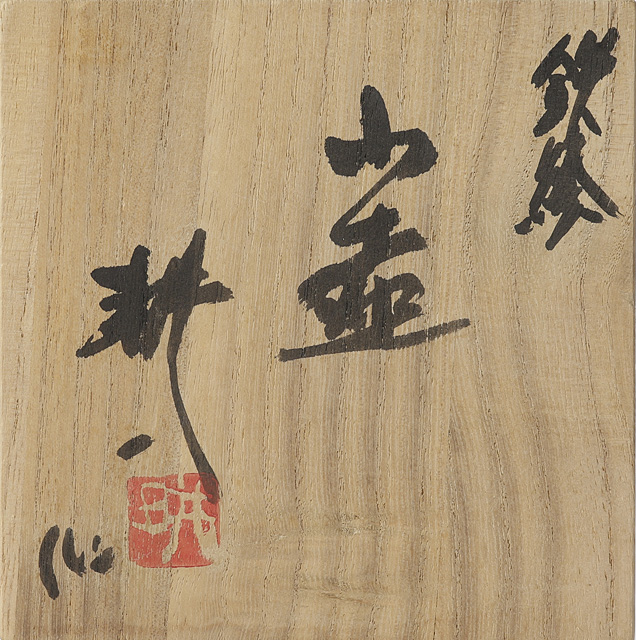 鉄絵
小壷
耕一
作